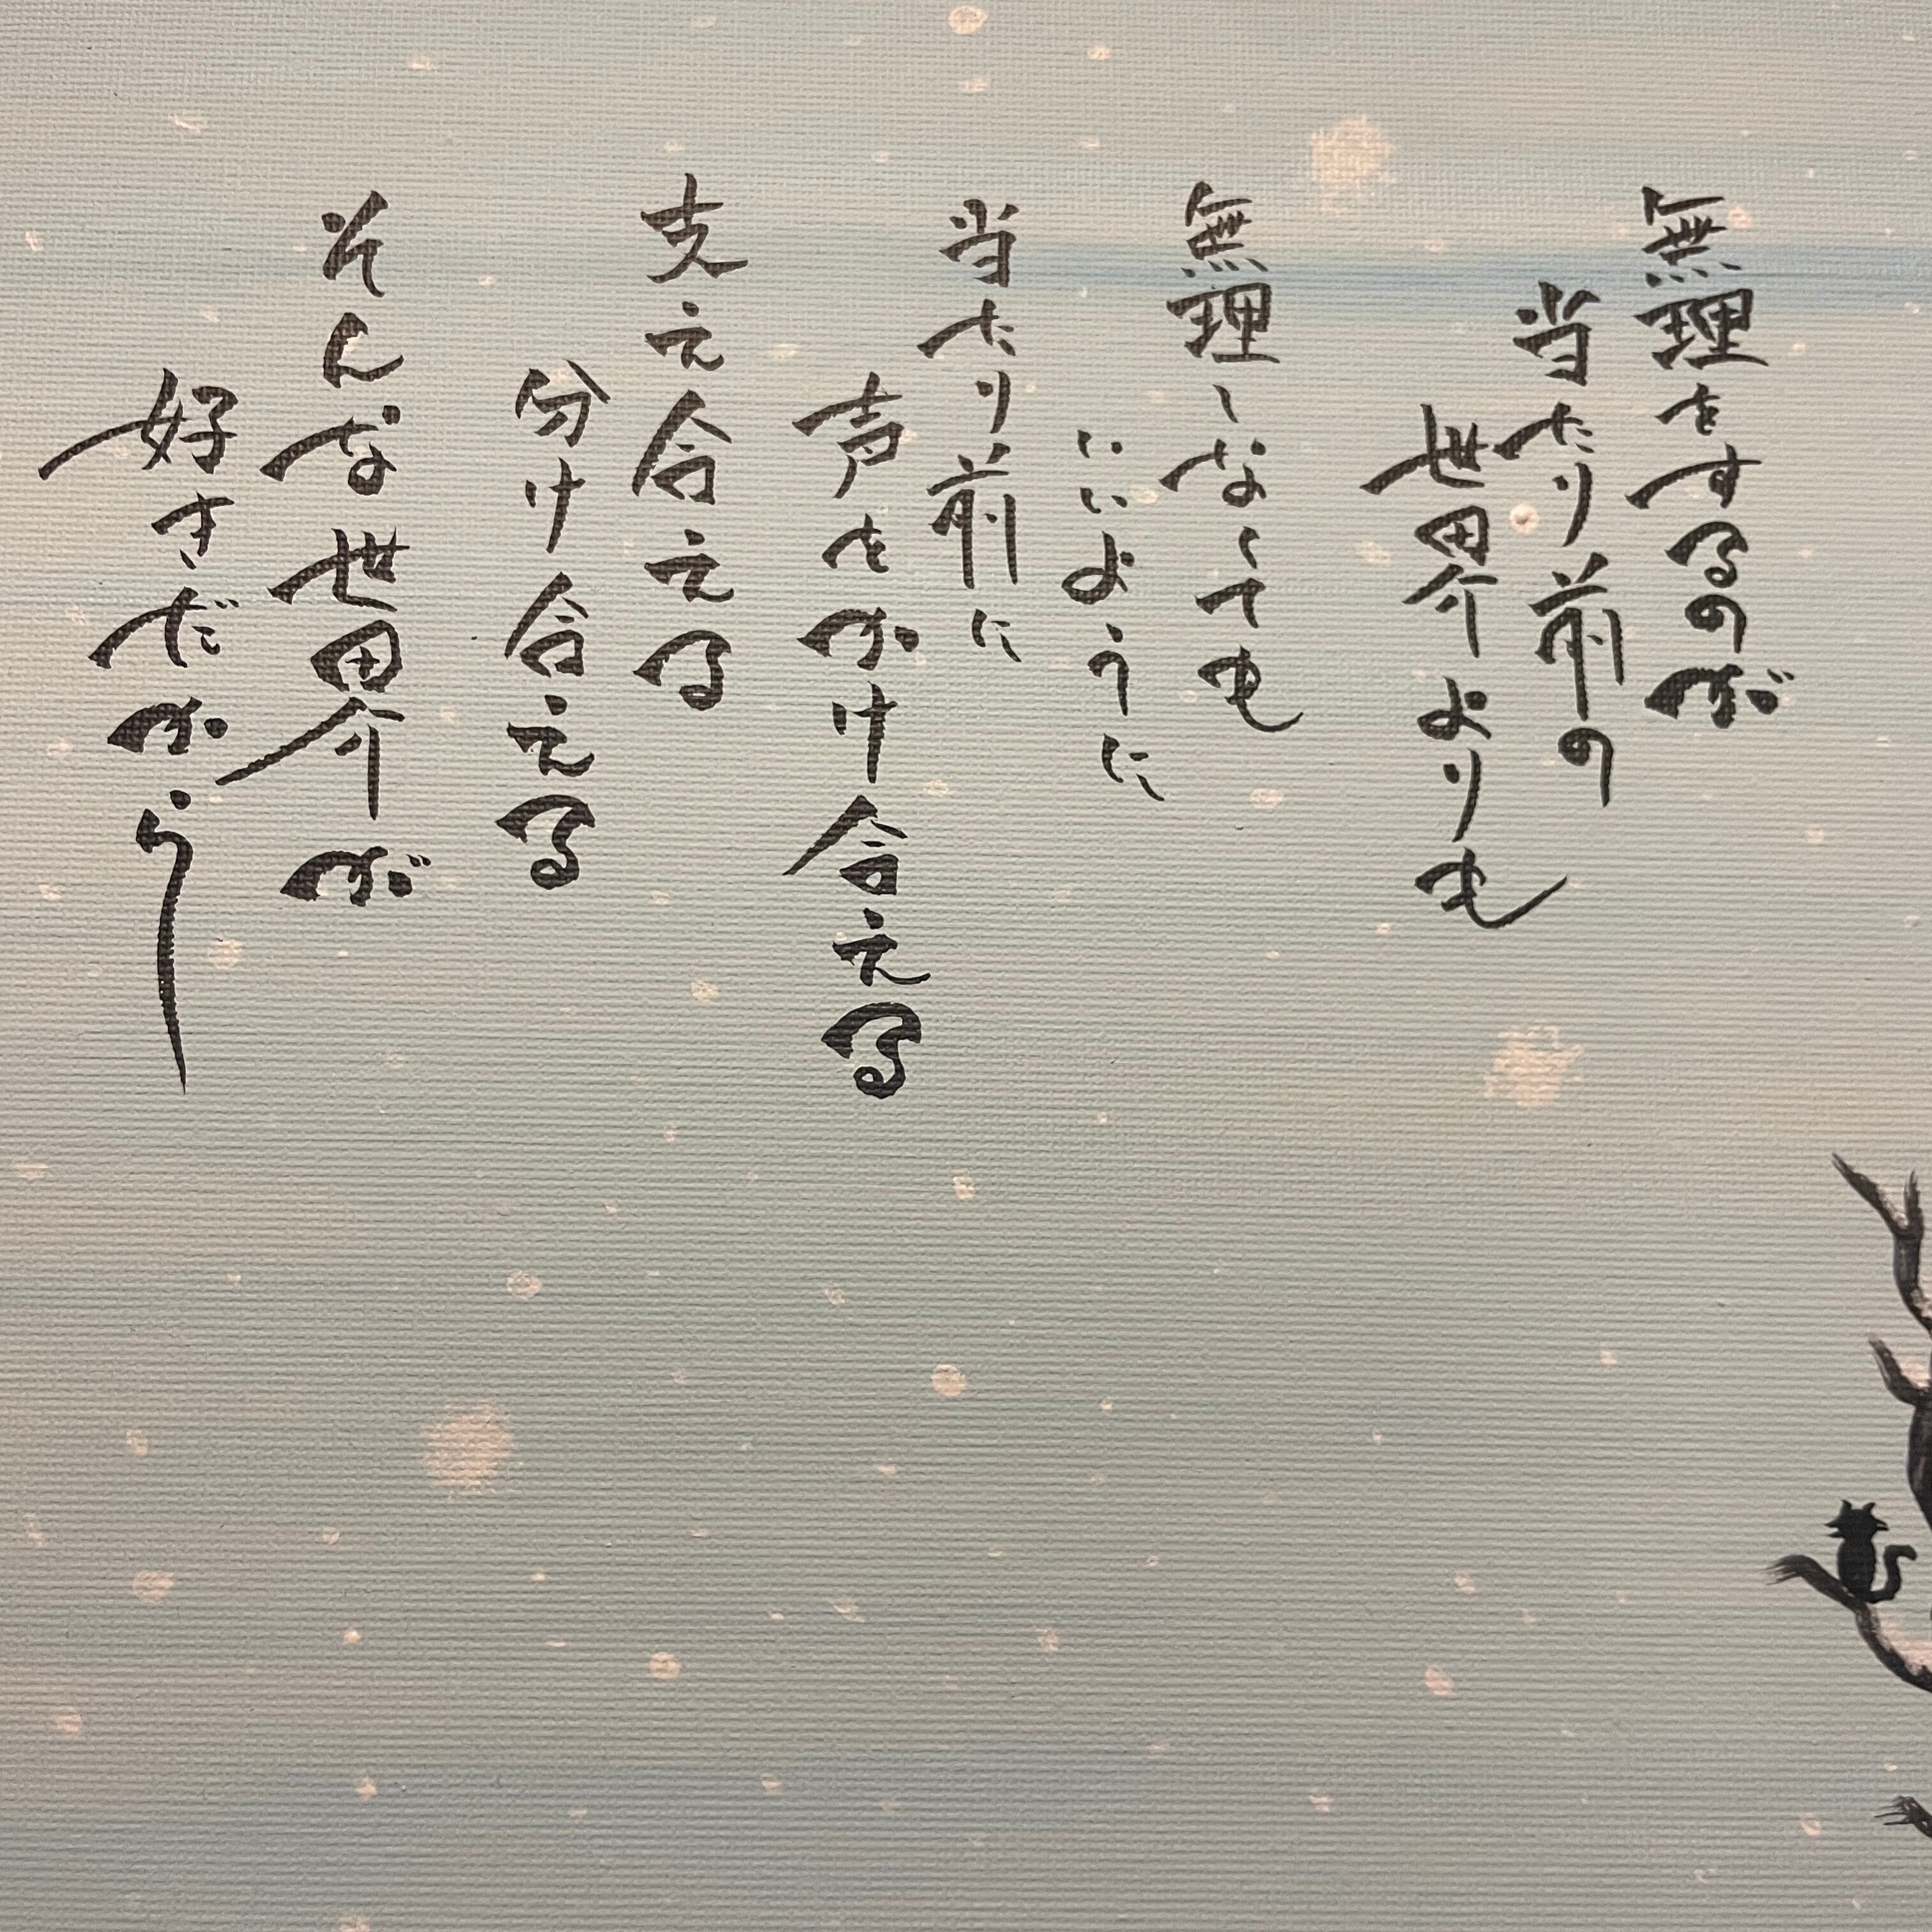 無理をするのが
当たり前の
世界よりも
無理しなくても
いいように
当たり前に
声をかけ合える
支え合える
分け合える
そんな世界が
好きだから